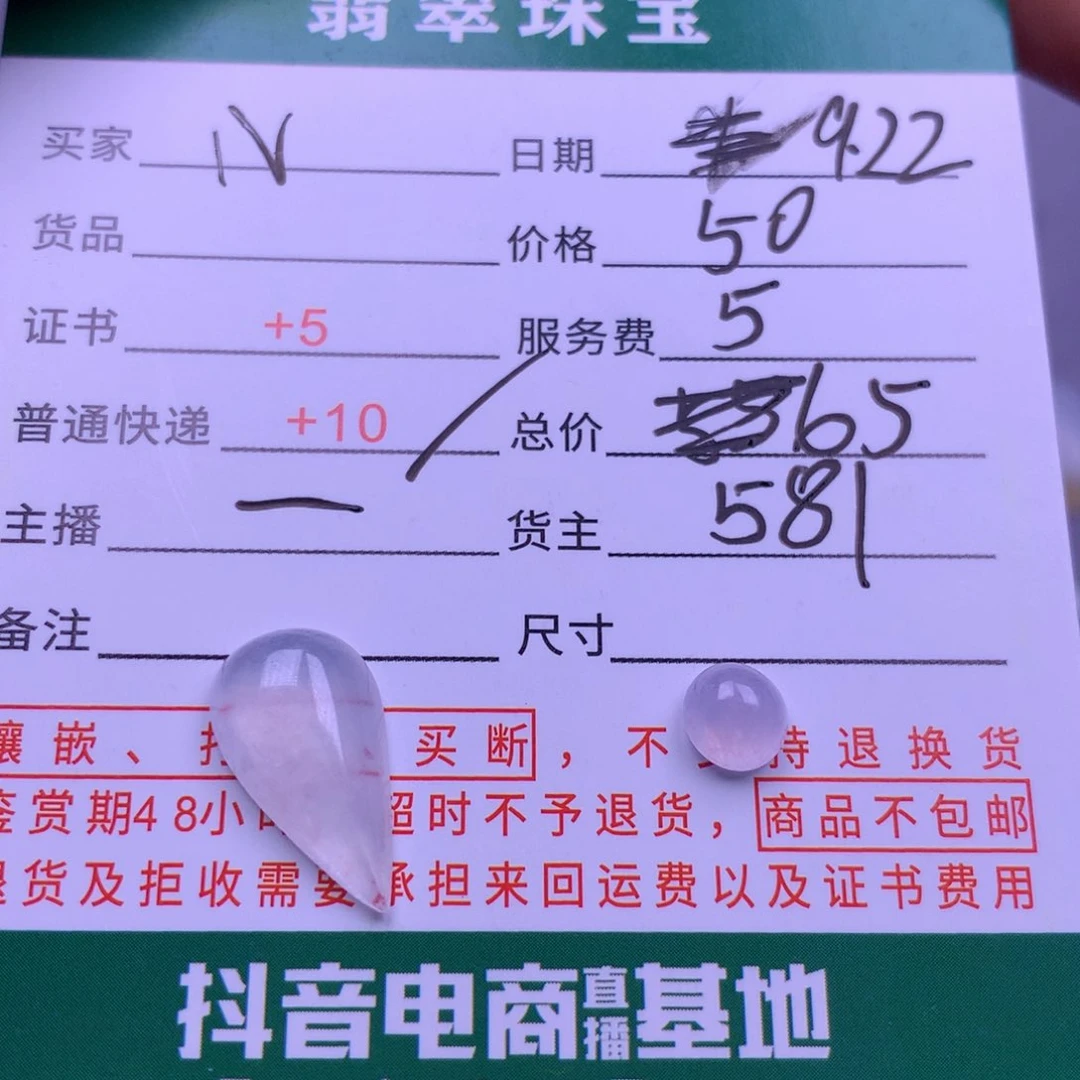 翡翠珠宝
买家 IV 日期 9.22
货品 价格 50
证书 +5 服务费 5
普通快递 +10 总价 65
主播 一 货主 581
备注 尺寸
镶嵌、 买断，不 持退换货
鉴赏期48小时 超时不予退货，商品不包邮
退货及拒收需要承担来回运费以及证书费用
抖音电商直播基地